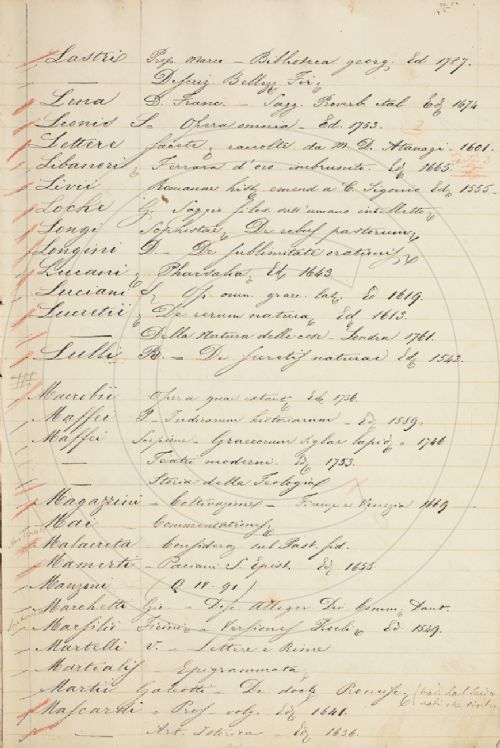 Lastri Prop. Marco - Biblioteca georg. Ed 1787.
— Descriz. Bellez. Fir.
Lena D. Franc. - Sagg. Proverb ital Ed 1674
Leonis S. - Opera omnia - Ed. 1753.
Lettere facete, raccolte da M. D. Attanagi. 1601.
Libanori Ferrara d'oro imbrunito. Ed 1665.
Livii Romanae hist. emend a C. Sigonio Ed 1555.
Locke G. Saggio filos. sull'umano intelletto
Longi Sophistae De rebus pastorum
Longini D. - De sublimitate orationis
Lucani Pharsalia, Ed 1643.
Luciani S. Op. omn. graec. lat. Ed 1619.
Lucretii De rerum natura, Ed 1613.
— Della Natura delle cose - Londra 1761.
Lulli R. - De secretis naturae Ed 1542.
Macrobii Opera quae extant - Ed. 1736.
Maffei P. Indiarum historiarum - Ed 1589.
Maffei Scipione - Graecorum siglae lapid. - 1746
— Teatri moderni. Ed 1753.
— Storia della Teologia
Magazzini - Coltivazione - Firenze e Venezia 1669
Mai - Commentationes
Malacreta - Consideraz sul Past. fid.
Mamerti - Paciani S. Epist. Ed 1655
Manzoni (2 IV-91)
Marchetti Gio. - Disc. Alleger Div Comm. Dant.
Marsilii Ficini - Versiones Ed 1549.
Martelli V. - Lettere e Rime
Martialis Epigrammata
Martii Galeotti - De doct.
Mascardi - Prof. volg. Ed 1641.
— Art. Istorica - Ed 1636.